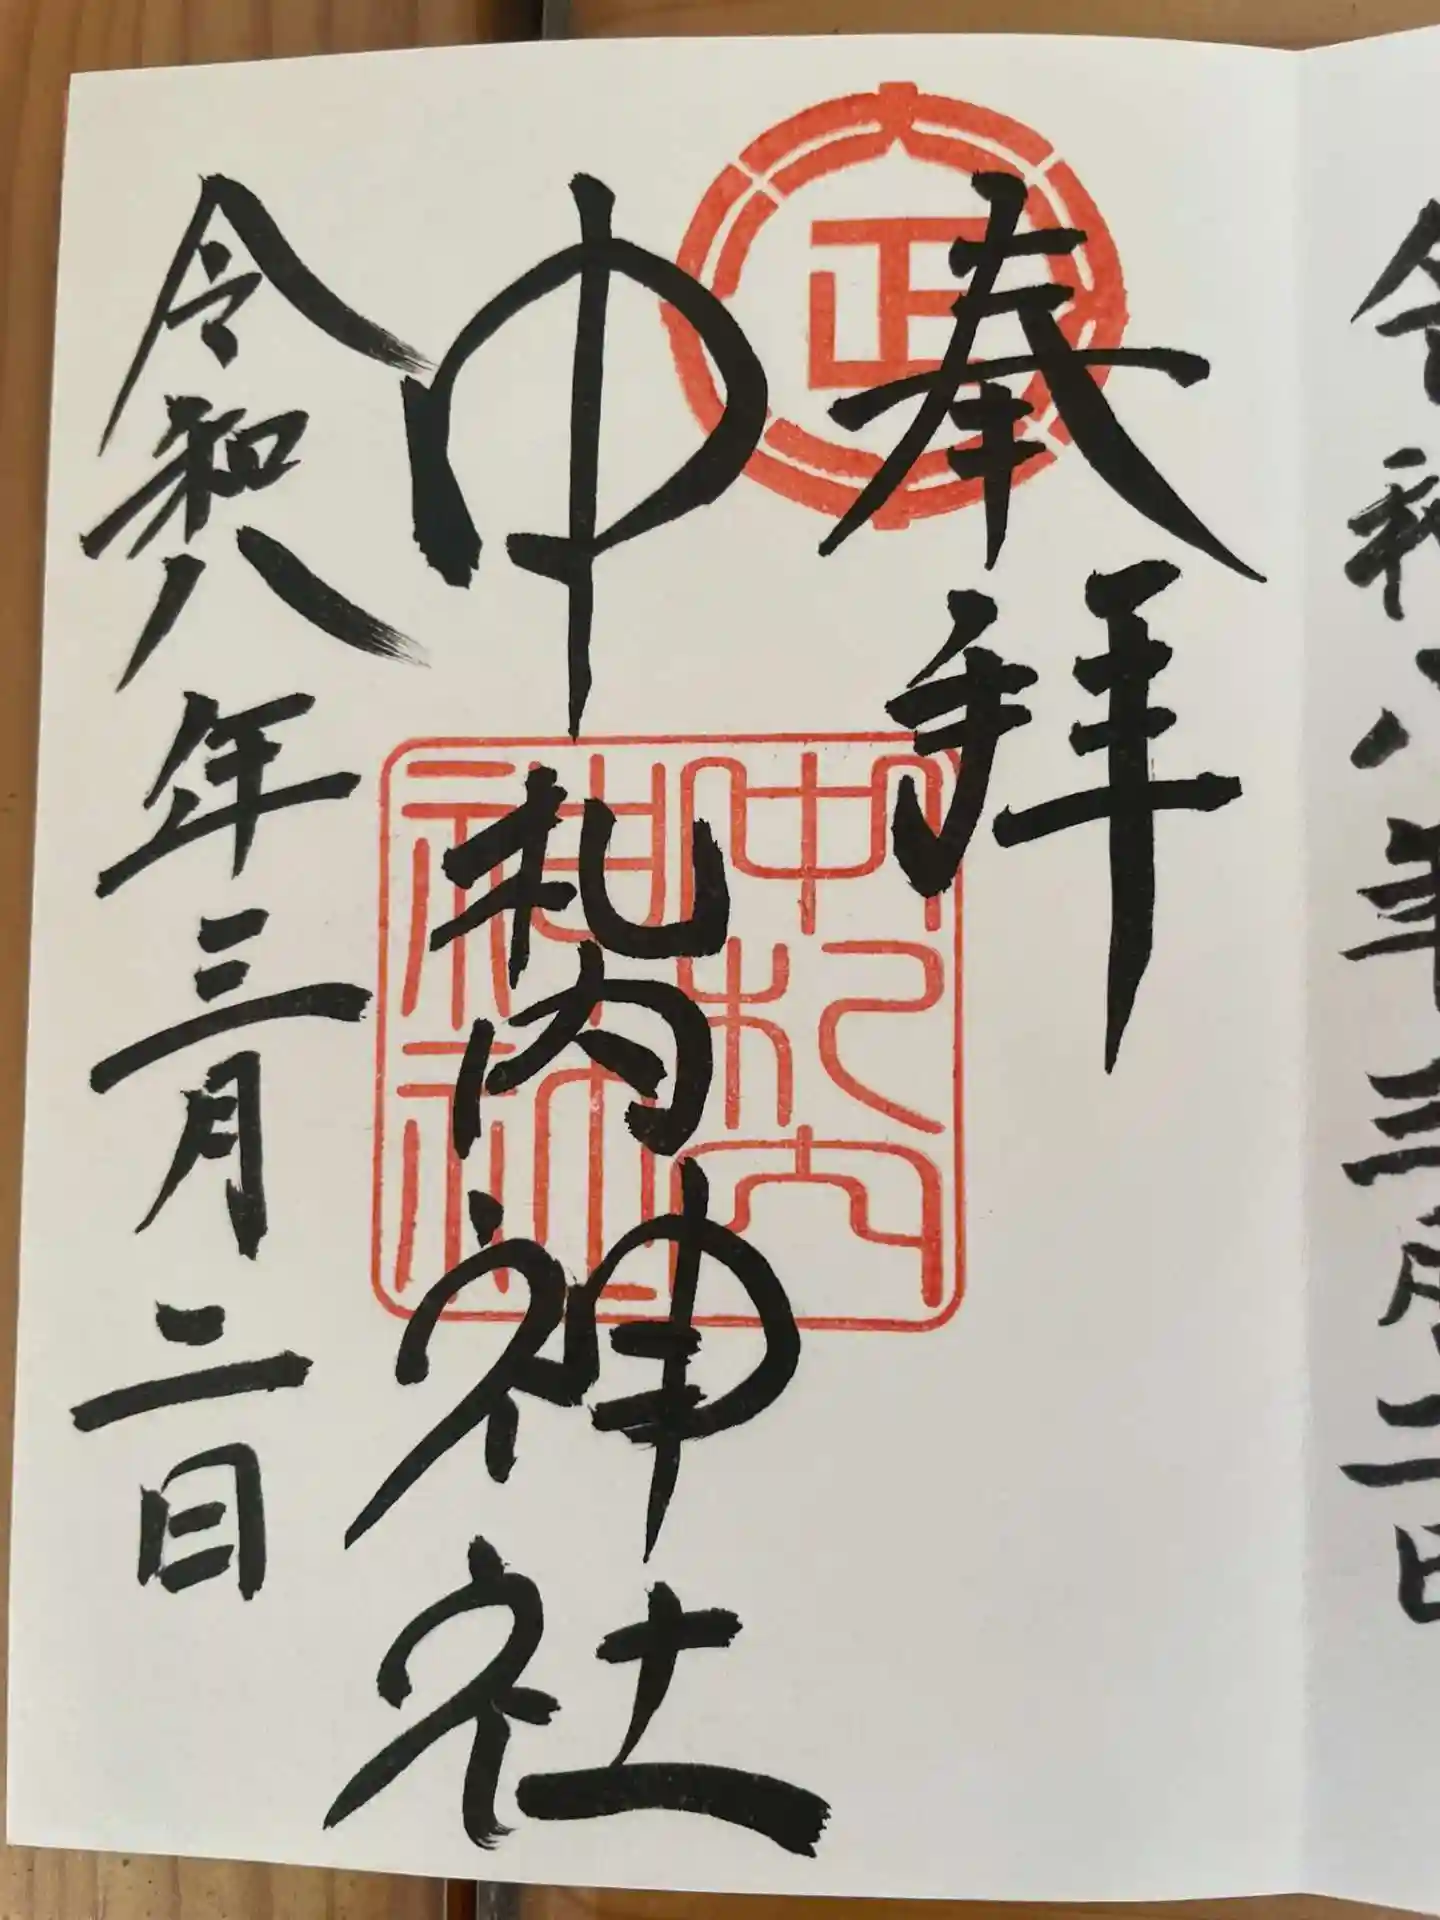 奉拝
中札内神社
令和八年三月二日
中札内
神社
令和八年三月二日